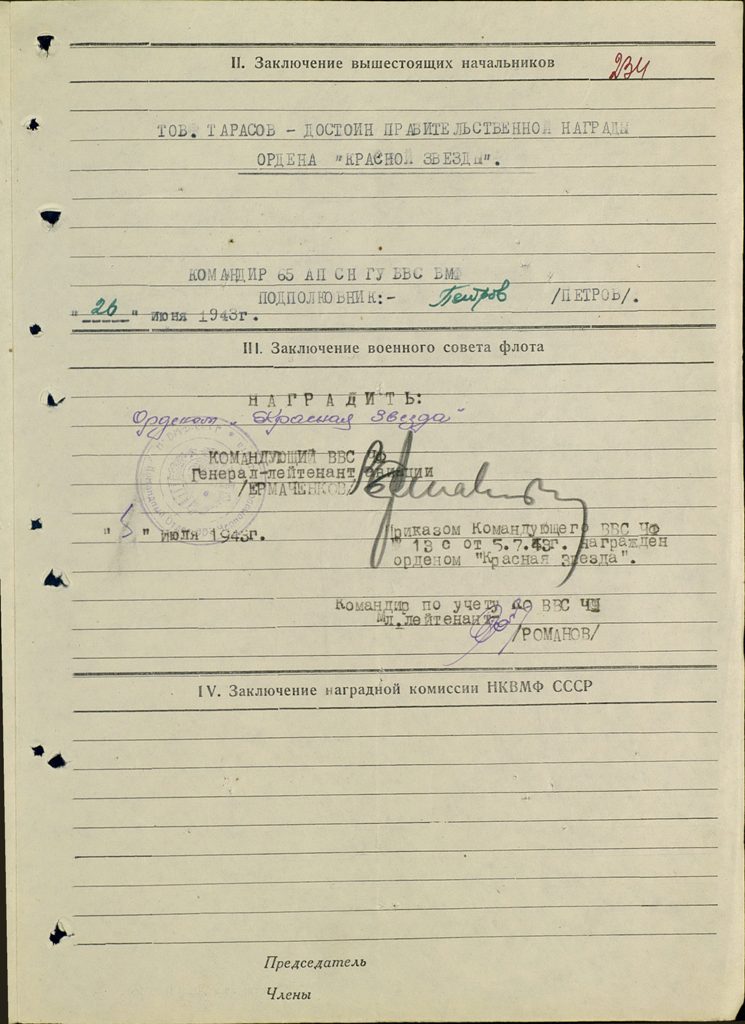 II. Заключение вышестоящих начальников
234
ТОВ. ТАРАСОВ – ДОСТОИН ПРАВИТЕЛЬСТВЕННОЙ НАГРАДЫ
ОРДЕНА "КРАСНОЙ ЗВЕЗДЫ".
КОМАНДИР 65 АП СН ГУ ВВС ВМФ
ПОДПОЛКОВНИК:- Петров /ПЕТРОВ/.
" 26 " июня 1943г.
III. Заключение военного совета флота
НАГРАДИТЬ:
Орденом "Красная Звезда"
КОМАНДУЮЩИЙ ВВС ЧФ
Генерал-лейтенант авиации
/ЕРМАЧЕНКОВ/
" 5 " июля 1943г.
Приказом Командующего ВВС ЧФ
№ 13 с от 5.7.43г. награжден
орденом "Красная Звезда".
Командир по учету ЛС ВВС ЧФ
Мл.лейтенант-
/РОМАНОВ/
IV. Заключение наградной комиссии НКВМФ СССР
Председатель
Члены